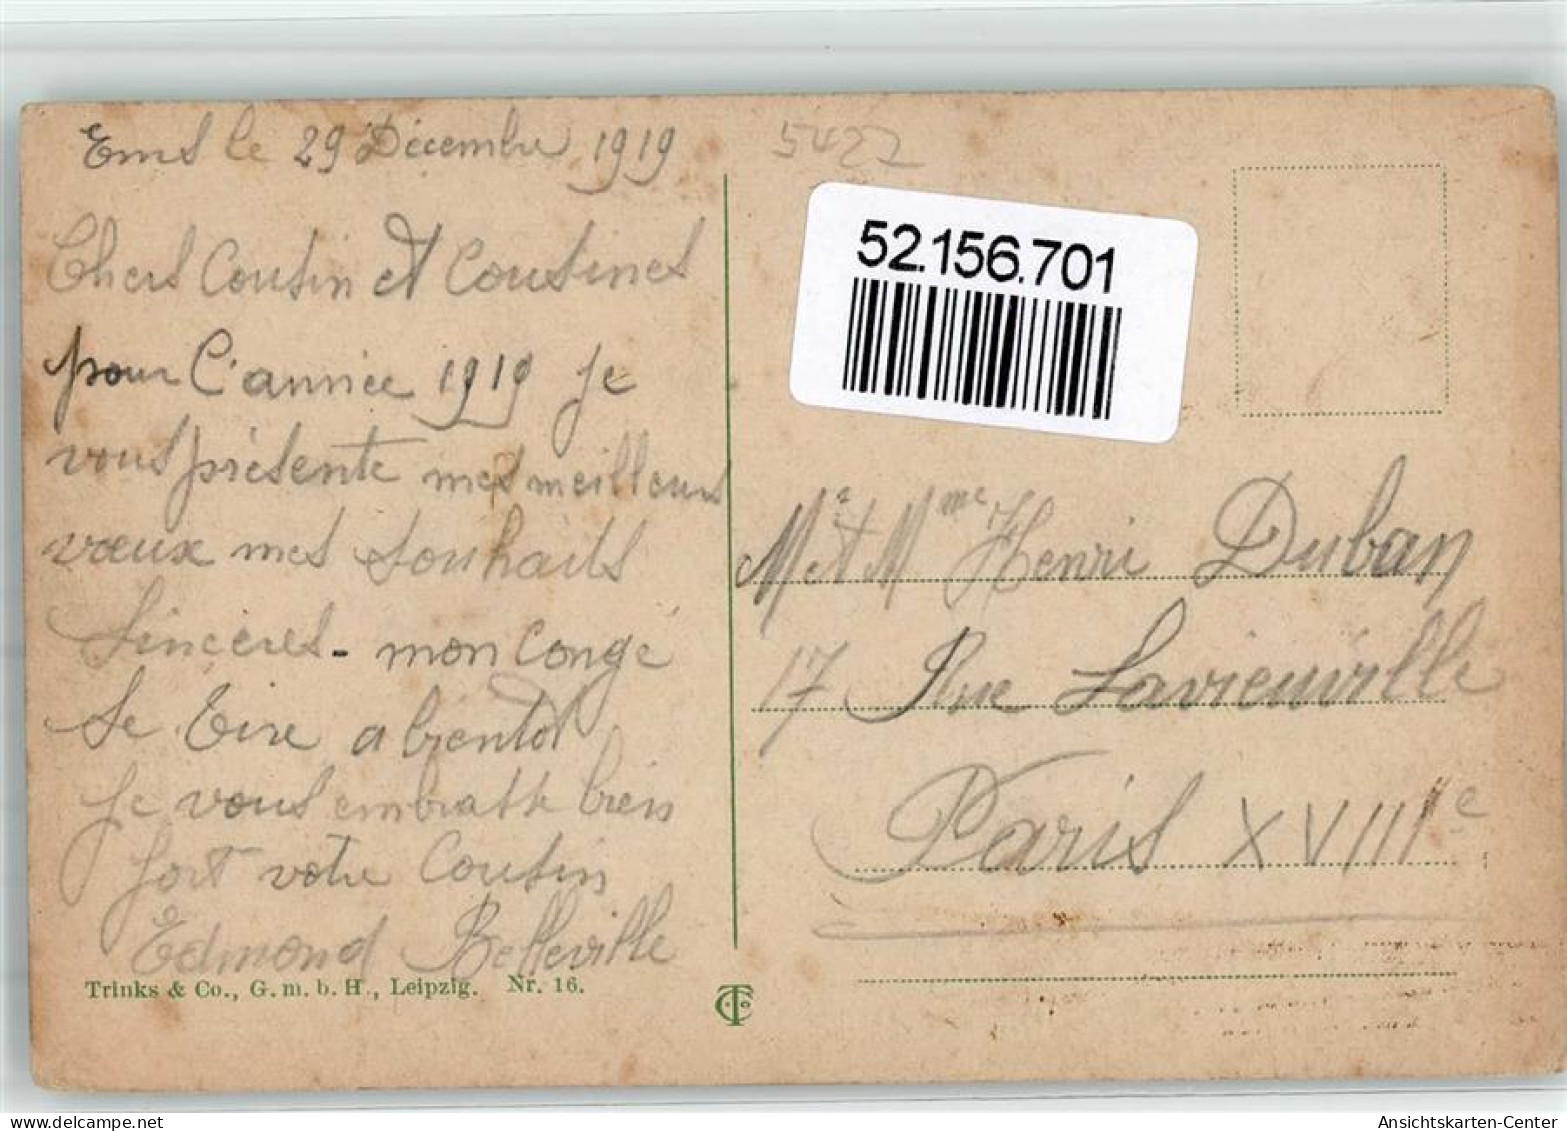 Ems le 29 Décembre 1919
Chers Cousin et Cousines
pour l'année 1919 je
vous présente mes meilleurs
vœux mes souhaits
Sincères - mon Congé
Se tire a bientot
je vous embrasse bien
fort votre Cousin
Edmond Belleville
Trinks & Co., G. m. b. H., Leipzig. Nr. 16.
5422
52.156.701
Mr et Mme Henri Duban
17 Rue Lavieuville
Paris XVIIIe
delcampe.net
Ansichtskarten-Center